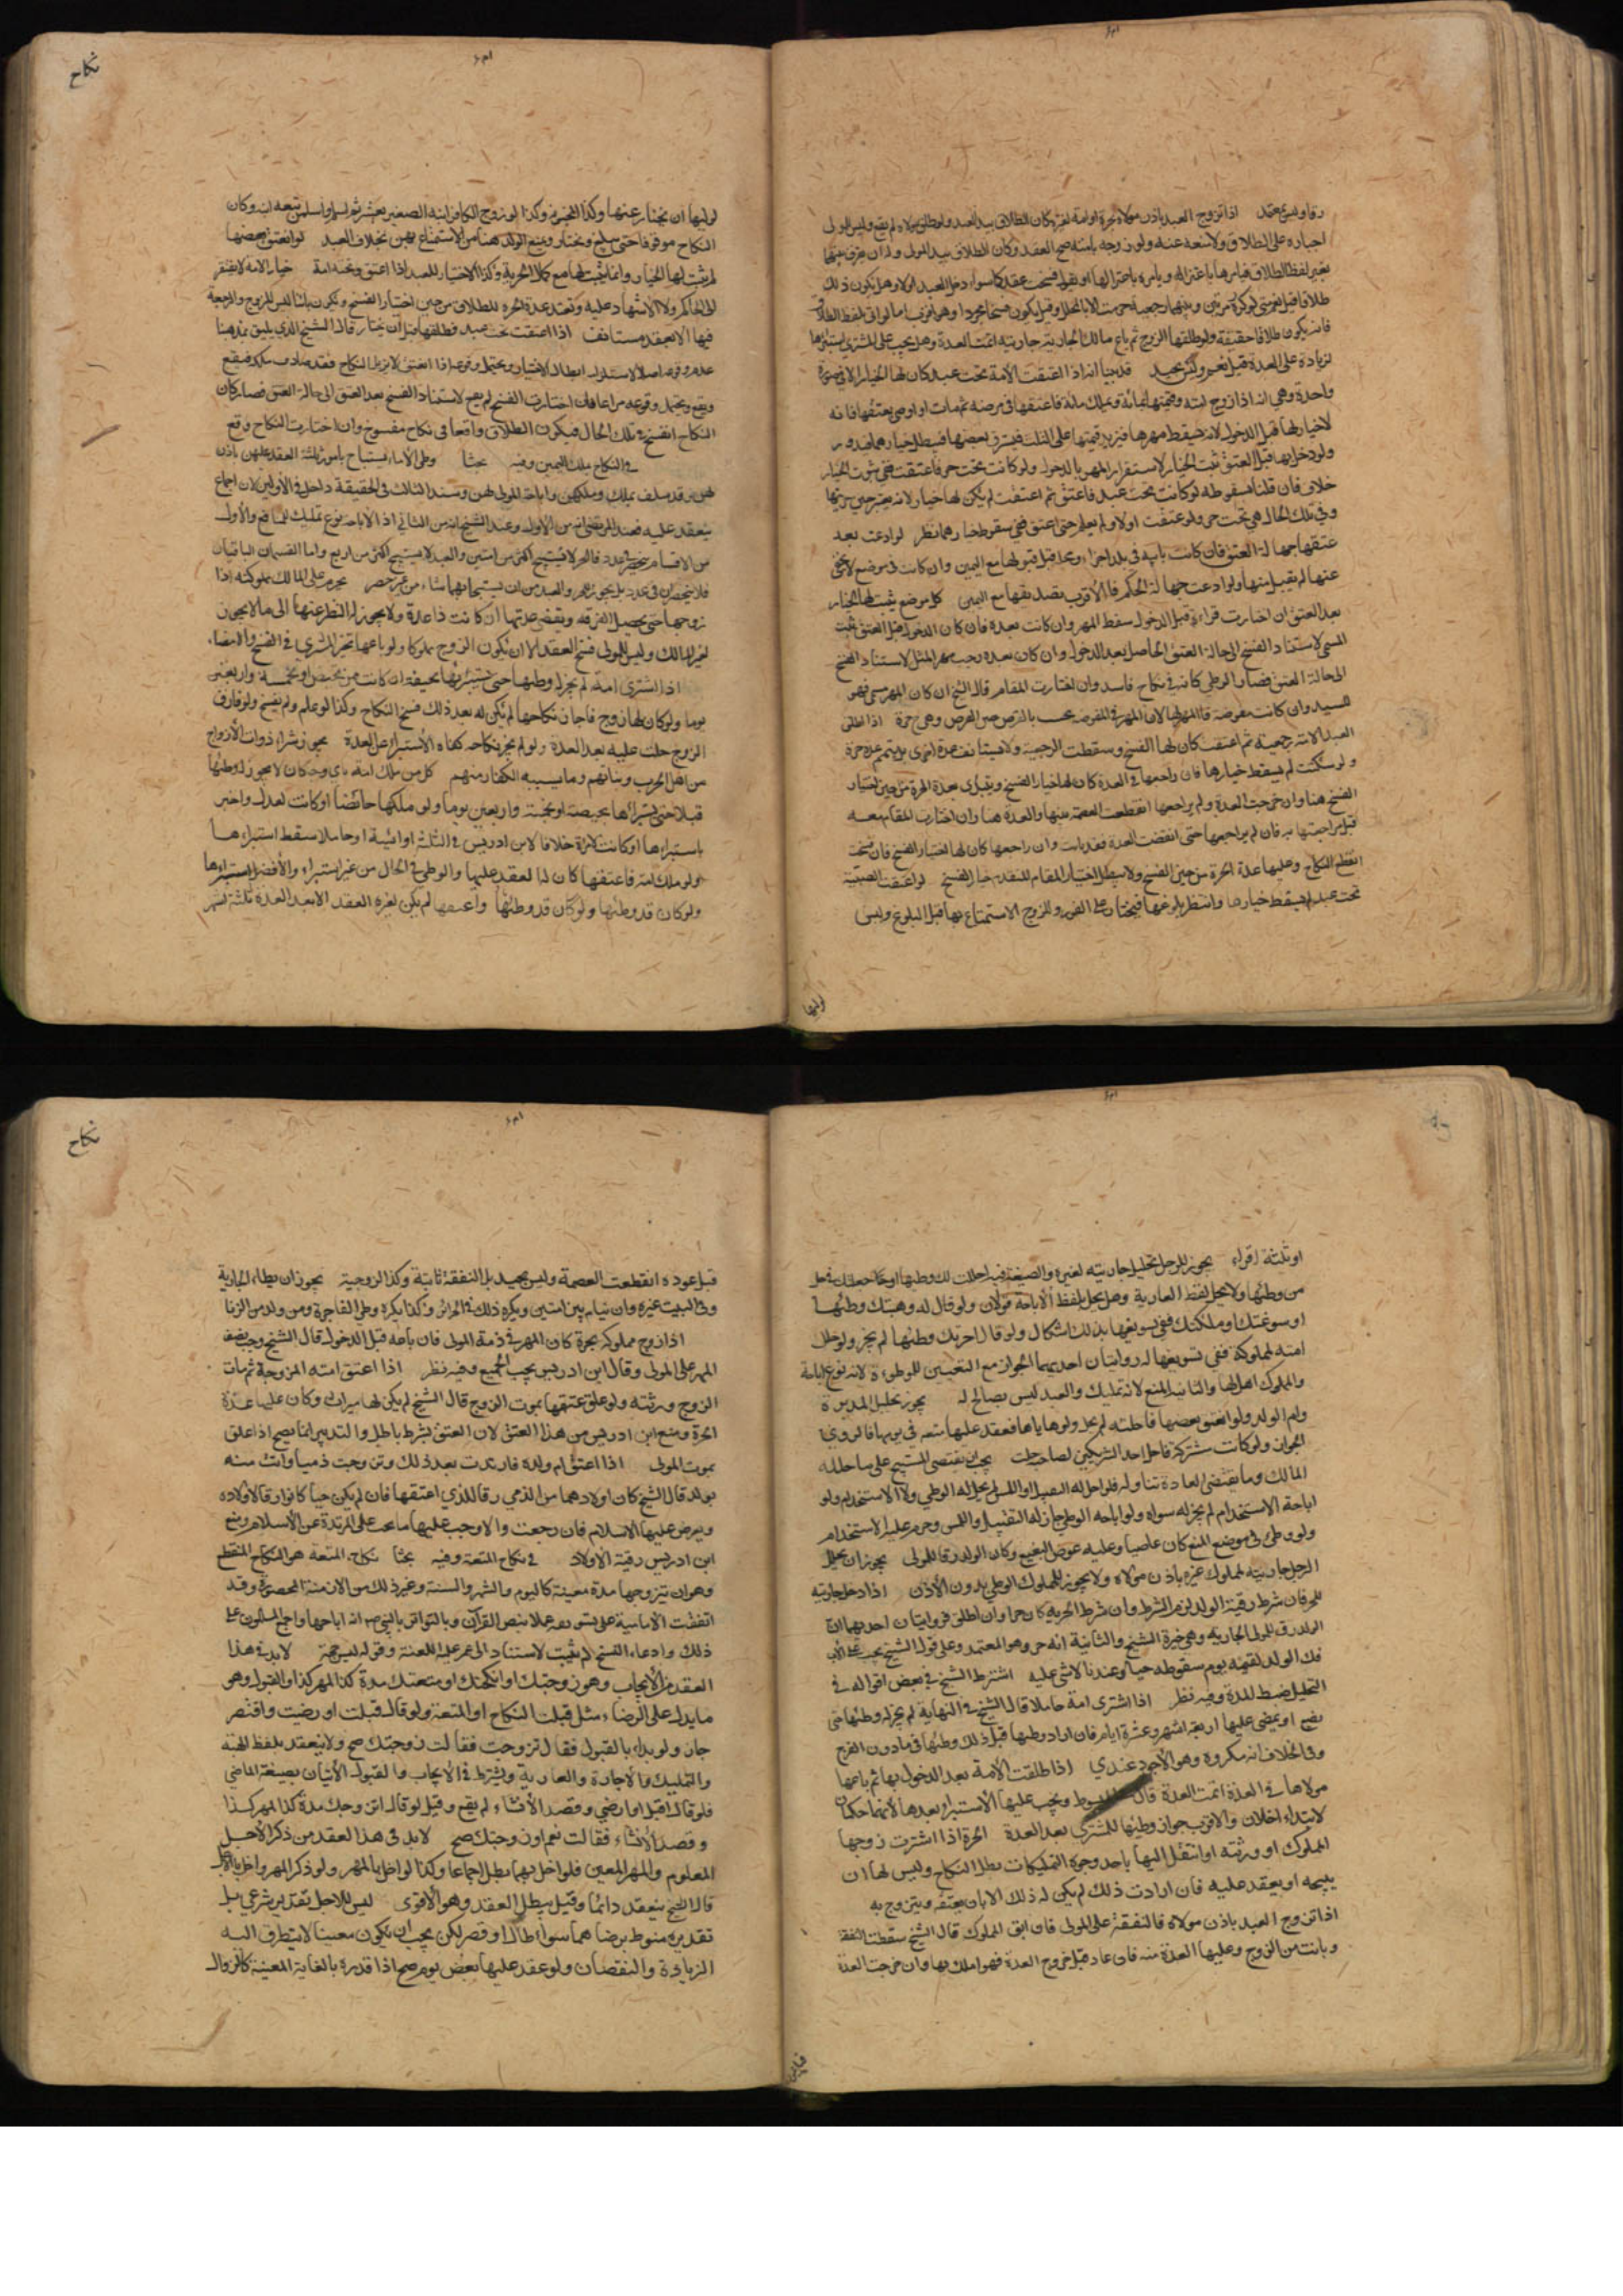 نكاح
رقا وليس بمعتمد اذا تزوج العبد باذن مولاه بحرة او امة لغيره كان الطلاق بيد العبد ولو طلق مولاه لم يقع وليس للمولى
اجباره على الطلاق ولا منعه عنه ولو زوجه بامته صح العقد وكان الطلاق بيد المولى وله ان يفرق بينهما
بغير لفظ الطلاق فيامرها باعتزاله ويامره باعتزالها او يقول فسخت عقدكما سواء دخل العبد اولا وهل يكون ذلك
طلاقا قيل نعم حتى لو كرره مرتين وبينهما رجعة حرمت الا بالمحلل وقيل يكون فسخا مجردا وهو اقوى اما لو اتى بلفظ الطلاق
فانه يكون طلاقا حقيقة ولو طلقها الزوج ثم باع مالك الجارية جاريته اتمت العدة وهل يجب على المشترى استبراؤها
لزيادة على العدة قيل نعم وليس بجيد قد بينا انه اذا اعتقت الامة تحت عبد كان لها الخيار الا في صورة
واحدة وهي انه اذا زوج امته وقيمتها مائة ويملك مائة فاعتقها في مرضه ثم مات او اوصى بعتقها فانه
لا خيار لها قبل الدخول لانه يسقط مهرها فتزيد قيمتها على الثلث فيسترق بعضها فيبطل خيارها فيدور
ولو دخل بها قبل العتق ثبت الخيار لاستقرار المهر بالدخول ولو كانت تحت حر فاعتقت ففي ثبوت الخيار
خلاف فان قلنا بسقوطه لو كانت تحت عبد فاعتق ثم اعتقت لم يكن لها خيار لانه يعتبر حين حريتها
وفي تلك الحال هي تحت حر ولو عتقت اولا ولم يعلم حتى اعتق ففي سقوط خيارها نظر لو ادعت بعد
عتقها جهالة العتق فان كانت نايية في بلد اخر قبل قولها مع اليمين وان كانت في موضع لا يخفى
عنها لم يقبل منها ولو ادعت جهالة الحكم فالاقرب تصديقها مع اليمين كل موضع يثبت لها الخيار
بعد العتق ان اختارت فراقه قبل الدخول سقط المهر وان كانت بعده فان كان الدخول قبل العتق ثبت
المسمى لاستناد الفسخ الى حالة العتق الحاصل بعد الدخول وان كان بعده وجب مهر المثل لاستناد الفسخ
الى حالة العتق فصار الوطي كانه في نكاح فاسد وان اختارت المقام قال الشيخ ان كان المهر سمى فهو
للسيد وان كانت مفوضة فالمهر لها لان المهر في المفوضة يجب بالفرض حين الفرض وهي حرة اذا طلق
العبد الامة رجعية ثم اعتقت كان لها الفسخ وسقطت الرجعية ولا يستانف عدة اخرى بل يتمم عدة حرة
ولو سكتت لم يسقط خيارها فان راجعها في العدة كان لها خيار الفسخ ويبتدى بعدة الحرة من حين اختيار
الفسخ هنا وان خرجت العدة ولم يراجعها انقطعت العصمة بينهما والعدة هنا وان اختارت المقام معه
قبل مراجعتها فان لم يراجعها حتى انقضت العدة فقد بانت وان راجعها كان لها اختيار الفسخ فان فسخت
انقطع النكاح وعليها عدة الحرة من حين الفسخ ولا يبطل اختيار المقام المتقدم خيار الفسخ لو اعتقت الصبية
تحت عبد لم يسقط خيارها وانتظر بلوغها فيختار على الفور وللزوج الاستمتاع بها قبل البلوغ وليس
لوليها
لوليها ان يختار عنها وكذا المجنونة وكذا لو زوج الكافر ابنه الصغير بعشر ثم اسلم واسلمن تبعه ابنه وكان
النكاح موقوفا حتى يبلغ ويختار ويمنع الولد هنا من الاستمتاع بهن بخلاف العبد لو انعتق بعضها
لم يثبت لها الخيار وانما يثبت لها مع كمال الحرية وكذا لا اختيار للعبد اذا اعتق وتحته امة خيار الامة لا يفتقر
الى الحاكم ولا الاشهاد عليه وتعتد عدة الحرة للطلاق من حين اختيار الفسخ ويكون بائنا ليس للزوج الرجعة
فيها الا بعقد مستانف اذا اعتقت تحت عبد فطلقها قبل ان يختار قال الشيخ الذي يليق بمذهبنا
عدم وقوعه اصلا لاستلزامه ابطال الاختيار ويحتمل وقوعه اذا العتق لا يزيل النكاح فقد صادف ملكه فيقع
ويقع ويحتمل وقوعه مراعا فان اختارت الفسخ لم يقع لاستناد الفسخ بعد العتق الى حالة العتق فصار كان
النكاح انفسخ في تلك الحال فيكون الطلاق واقعا في نكاح مفسوخ وان اختارت النكاح وقع
في النكاح بملك اليمين وفيه بحثا وطي الاماء يستباح بامور ثلثة العقد عليهن باذن
لهن وقد سلف بملك وملكهن واباحة المولى لهن وسند الثالث في الحقيقة داخل في الاولين لان اجماع
ينعقد عليه فعند المرتضى انه من الاول وعند الشيخ انه من الثاني اذ الاباحة نوع تمليك للمنافع والاول
من الاقسام ينحصر في عدد فالحر لا يستبيح اكثر من امتين والعبد لا يستبيح اكثر من اربع واما القسمان الباقيان
فلا ينحصران في عدد بل يجوز للحر والعبد من ان يستبيحا بهما ما شاء من غير حصر يحرم على المالك مملوكته اذا
زوجها حتى يحصل الفرقة وينقضى عدتها ان كانت ذا عدة ولا يجوز له النظر عنها الى ما لا يجوز
لغير المالك وليس للمولى فسخ العقد الا ان يكون الزوج مملوكا ولو باعها تخير المشترى في الفسخ والامضاء
اذا اشترى امة لم يجز له وطيها حتى يستبرئها بحيضة ان كانت ممن تحيض او بخمسة واربعين
يوما ولو كان لها زوج فاجاز نكاحها لم يكن له بعد ذلك فسخ النكاح وكذا لو علم ولم يفسخ ولو فارق
الزوج حلت عليه بعد العدة ولو لم يجز نكاحه كفاه الاستبراء عن العدة يجوز شراء ذوات الازواج
من اهل الحرب وبناتهم وما يسبيه الكفار منهم كل من ملك امة باى وجه كان لا يجوز له وطئها
قبلا حتى يستبراها بحيضة او بخمسة واربعين يوما ولو ملكها حائضا او كانت لعدل واخبر
باستبراءها او كانت لامراة خلافا لابن ادريس في الثلثة او ائيسة او حاملا سقط استبراءها
ولو ملك امة فاعتقها كان له العقد عليها والوطي في الحال من غير استبراء والافضل استبراءها
ولو كان قد وطئها ولو كان قد وطئها واعتقها لم يكن لغيره العقد الا بعد العدة ثلثة اشهر
نكاح
او ثلثة اقراء يجوز للرجل تحليل جاريته لغيره والصيغة فيه احللت لك وطيها او جعلتك في حل
من وطيها ولا يحل لفظ العارية وهل يحل بلفظ الاباحة قولان ولو قال له وهبتك وطئها
او سوغتك او ملكتك ففي تسويغها بذلك اشكال ولو قال اجرتك وطئها لم يجز ولو حلل
امته لمملوكه ففي تسويغها له روايتان احديهما الجواز مع التعيين للموطوءة لانه نوع اباحة
والمملوك اهل لها والثانية المنع لانه تمليك والعبد ليس بصالح له يجوز تحليل المدبرة
وام الولد ولو انعتق بعضها فاحلته لم يحل ولو هاياها فعقد عليها متعة في يومها فالمروي
الجواز ولو كانت مشتركة فاحل احد الشريكين لصاحبه حلت يجب ان يقتصر المستبيح على ما حلله
المالك وما يقتضى العادة تناوله فلو احل له التقبيل او اللمس لم يحل له الوطي ولا الاستخدام ولو
اباحة الاستخدام لم يجز له سواه ولو اباحه الوطي جاز له التقبيل واللمس وحرم عليه الاستخدام
ولو وطئ في موضع المنع كان عاصيا وعليه عوض البضع وكان الولد رقا للمولى يجوز ان يحلل
الرجل جاريته لمملوك غيره باذن مولاه ولا يجوز للمملوك الوطي بدون الاذن اذا دخل جاريته
للحر فان شرط رقية الولد لزم الشرط وان شرط الحرية كان حرا وان اطلق فروايتان احديهما ان
الولد رق لمولى الجارية وهي خيرة الشيخ والثانية انه حر وهو المعتمد وعلى قول الشيخ يجب على الاب
فك الولد بقيمته يوم سقوطه حيا وعندنا لا شئ عليه اشترط الشيخ في بعض اقواله في
التحليل ضبط المدة وفيه نظر اذا اشترى امة حاملا قال الشيخ في النهاية لم يجز له وطئها حتى
تضع او يمضى عليها اربعة اشهر وعشرة ايام فان اراد وطيها قبل ذلك وطئها فيما دون الفرج
وفي الخلاف انه مكروه وهو الاجود عندي اذا طلقت الامة بعد الدخول بها ثم باعها
مولاها في العدة اتمت العدة قال ويجب عليها الاستبراء بعدها لانهما حكمان
لا يتداخلان والاقرب جواز وطئها للمشترى بعد العدة الحرة اذا اشترت زوجها
المملوك او ورثته او انتقل اليها باحد وجوه التمليكات بطل النكاح وليس لها ان
يبيحه او يعقد عليه فان ارادت ذلك لم يكن له ذلك الا بان يعتقه ويتزوج به
اذا تزوج العبد باذن مولاه فالنفقة على المولى فان ابق المملوك قال الشيخ سقطت النفقة
وبانت من الزوج وعليها العدة منه فان عاد قبل خروج العدة فهو املك بها وان خرجت العدة
قبل عوده انقطعت العصمة وليس بجيد بل النفقة ثابتة وكذا الزوجية يجوز ان يطاء الجارية
وفي البيت غيره وان ينام بين امتين ويكره ذلك في الحرائر وكذا يكره وطي الفاجرة ومن ولد من الزنا
اذا زوج مملوكه بحرة كان المهر في ذمة المولى فان باعه قبل الدخول قال الشيخ وجب نصف
المهر على المولى وقال ابن ادريس يجب الجميع وفيه نظر اذا اعتق امته المزوجة ثم مات
الزوج ورثته ولو علق عتقها بموت الزوج قال الشيخ لم يكن لها ميراث وكان عليها عدة
الحرة ومنع ابن ادريس من هذا العتق لان العتق بشرط باطل والتدبير انما يصح اذا علق
بموت المولى اذا اعتق ام ولده فارتدت بعد ذلك وتزوجت ذميا واتت منه
بولد قال الشيخ كان اولادهما من الذمي رقا للذي اعتقها فان لم يكن حيا كانوا رقا لاولاده
ويعرض عليها الاسلام فان رجعت والا وجب عليها ما يجب على المرتدة عن الاسلام ومنع
ابن ادريس رقية الاولاد في نكاح المتعة وفيه بحثا نكاح المتعة هو النكاح المنقطع
وهو ان يتزوجها مدة معينة كاليوم والشهر والسنة وغير ذلك من الازمنة المحصورة وقد
اتفقت الامامية على تسويغه عملا بنص القرآن وبالتواتر بالنبي صم انه اباحها واجمع المسلمون على
ذلك وادعاء النسخ لم يثبت لاستناده الى عمر عليه اللعنة وقوله ليس حجة لابد في هذا
العقد من الايجاب وهو زوجتك او انكحتك او متعتك مدة كذا بمهر كذا والقبول وهو
ما يدل على الرضاء مثل قبلت النكاح او المتعة ولو قال قبلت او رضيت واقتصر
جاز ولو بداء بالقبول فقال تزوجت فقالت زوجتك صح ولا ينعقد بلفظ الهبة
والتمليك والاجارة والعارية ويشترط في الايجاب والقبول الاتيان بصيغة الماضي
فلو قال اقبل او ارضى وقصد الانشاء لم يقع وقيل لو قال اتزوجك مدة كذا بمهر كذا
وقصد الانشاء فقالت نعم او زوجتك صح لابد في هذا العقد من ذكر الاجل
المعلوم والمهر المعين فلو اخل بهما بطل اجماعا وكذا لو اخل بالمهر ولو ذكر المهر واخل بالاجل
قال الشيخ ينعقد دائما وقيل يبطل العقد وهو الاقوى ليس للاجل تقدير شرعي بل
تقديره منوط برضاهما سواء طال او قصر لكن يجب ان يكون معينا لا يتطرق اليه
الزيادة والنقصان ولو عقد عليها بعض يوم صح اذا قدره بالغاية المعينة كالزوال